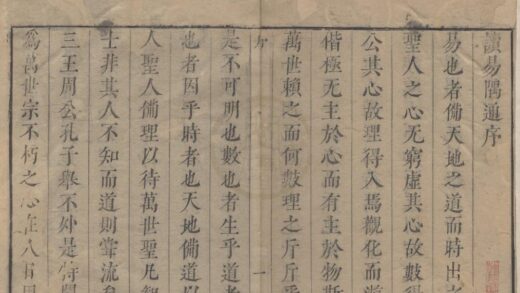 讀易隅通序
易也者偹天地之道而時出
聖人之心无窮虛其心故數得
公其心故理得入焉觀化而
偕極无主於心而有主於物斯
萬世賴之而何數理之斤斤
序 一
是不可明也數也者生乎道
也者因乎時者也天地偹道
人聖人偹理以待萬世聖凡
士非其人不知而道則常流
三王周公孔子舉不外是
為萬世宗不朽之心在八